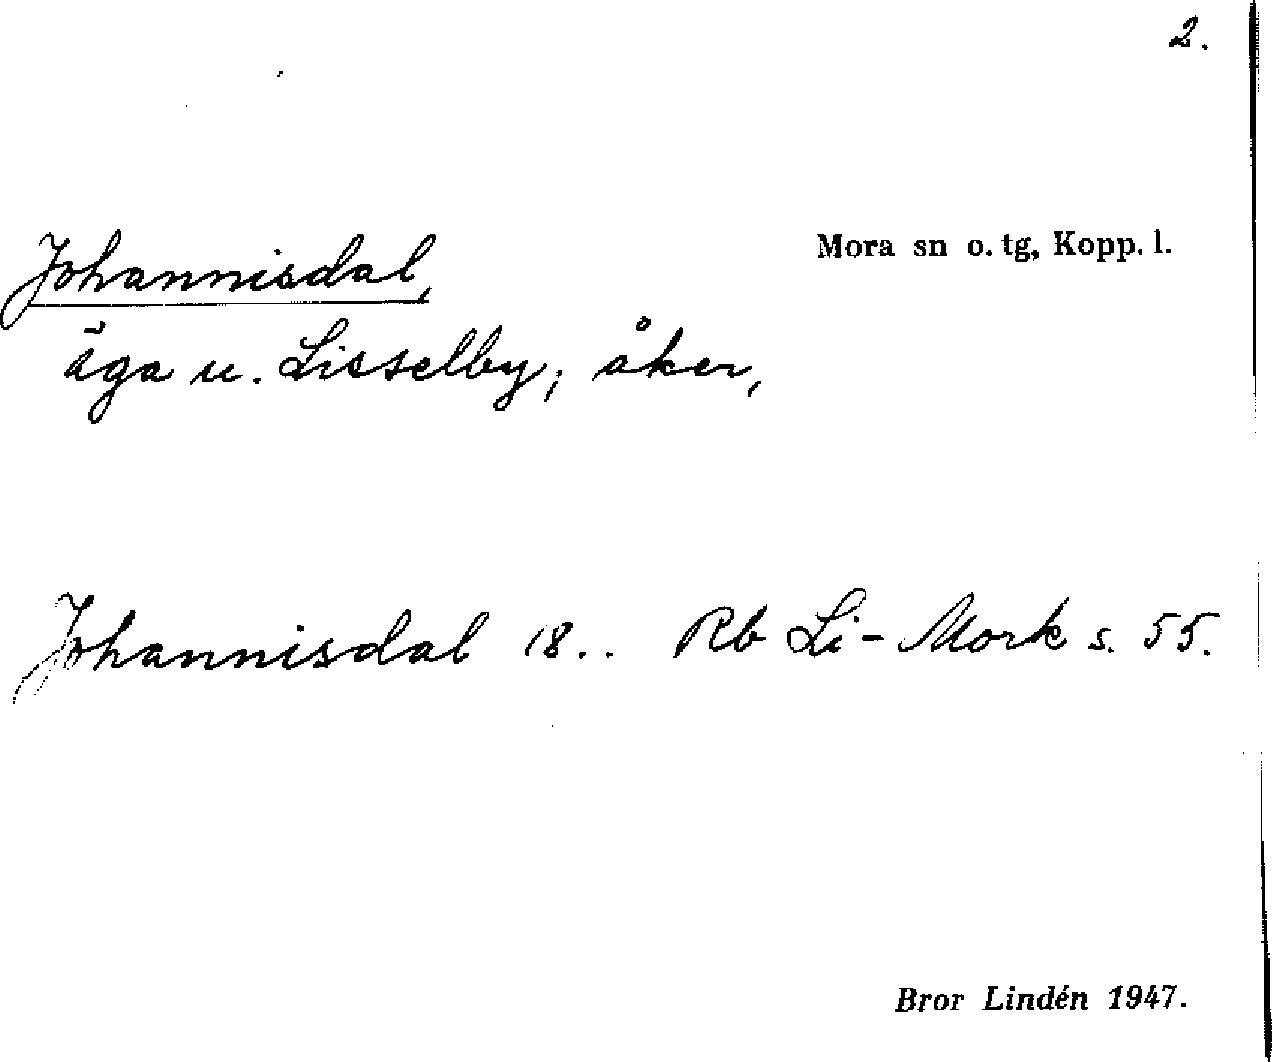 2.
Mora sn o. tg, Kopp. l.
Johannisdal,
äga u. Lisselby; åker,
Johannisdal 18.. Rb Li-Mork s. 55.
Bror Lindén 1947.